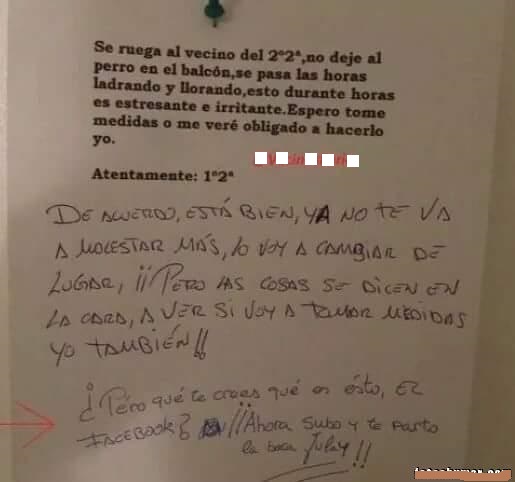 Se ruega al vecino del 2º2ª,no deje al
perro en el balcón,se pasa las horas
ladrando y llorando,esto durante horas
es estresante e irritante.Espero tome
medidas o me veré obligado a hacerlo
yo.
Atentamente: 1º2ª
DE ACUERDO, ESTÁ BIEN, YA NO TE VA
A MOLESTAR MÁS, lo VOY A CAMBIAR DE
LUGAR, ¡¡PERO LAS COSAS SE DICEN EN
LA CARA, A VER SI VOY A TOMAR MEDIDAS
YO TAMBIÉN!!
¿Péro qué te crees qué es ésto, EL
FACEBOOK? ¡¡Ahora Subo y te parto
la boca Julay!!